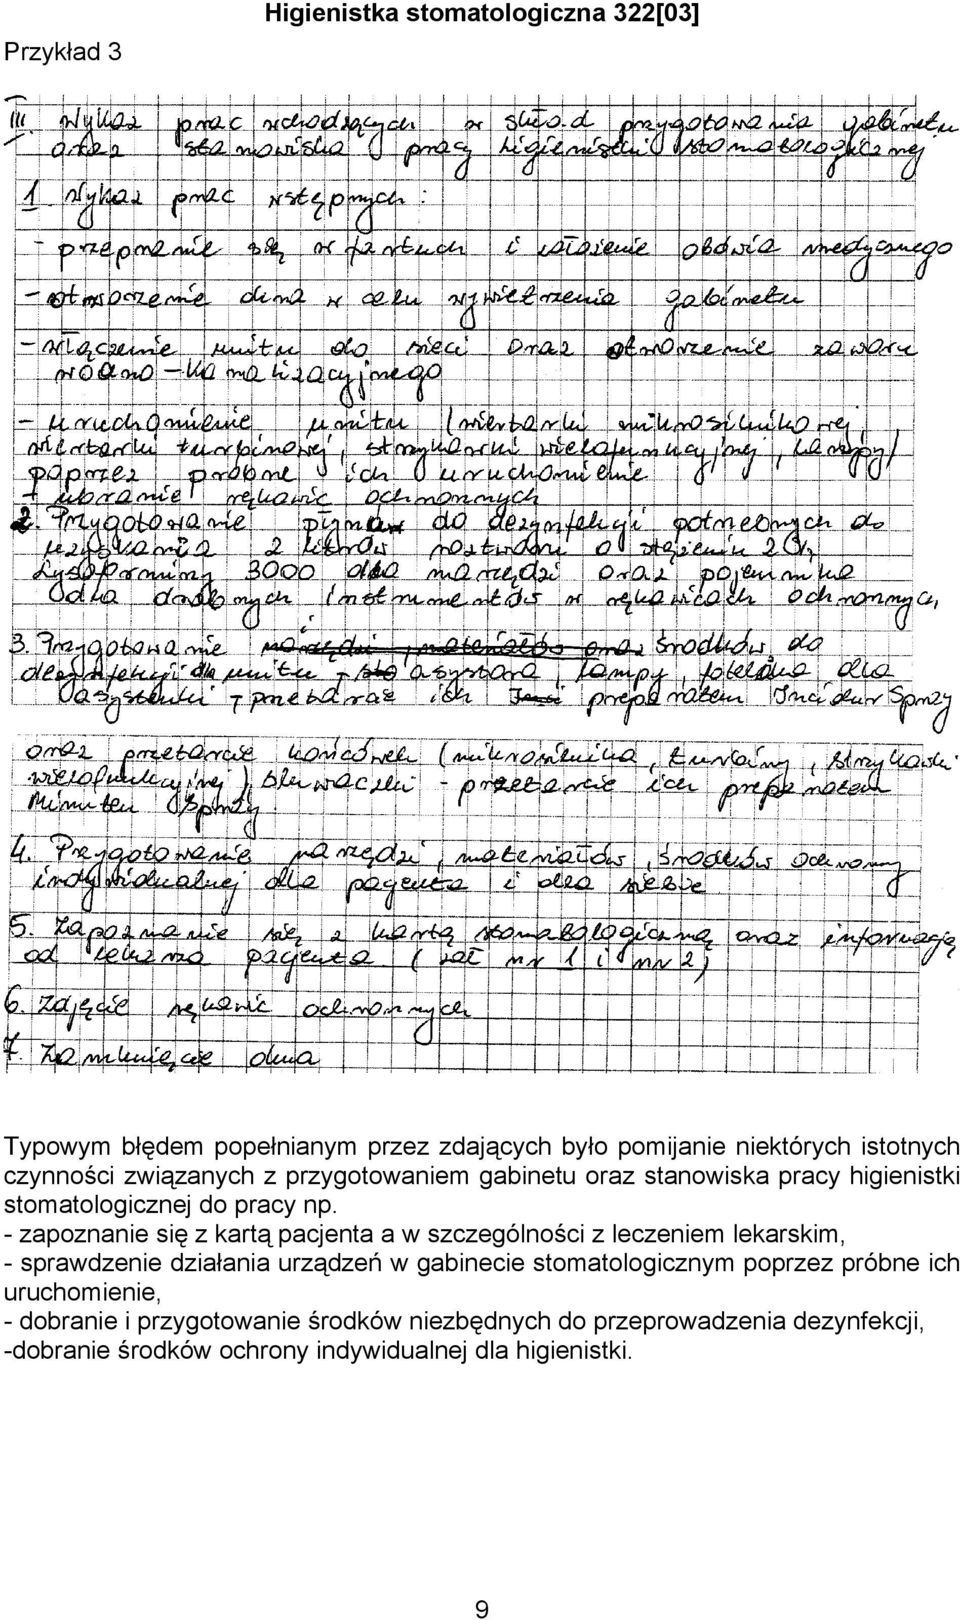 Higienistka stomatologiczna 322[03]
Przykład 3
III. Wykaz prac wchodzących w skład przygotowania gabinetu
oraz stanowiska pracy higienistki stomatologicznej
1 Wykaz prac wstępnych:
- przepranie się w fartuch i włożenie obówia medycznego
- otworzenie okna w celu wywietrzenia gabinetu
- włączenie unitu do sieci oraz otworzenie zaworu
wodno-kanalizacyjnego
- uruchomienie unitu (wiertarki mikrosilnikowej,
wiertarki turbinowej, strzykawki wielofunkcyjnej, lampy)
poprzez próbne ich uruchomienie
- ubranie rękawic ochronnych
2. Przygotowanie płynów do dezynfekcji potrzebnych do
uzyskania 2 litrów roztworu o stężeniu 2%
Lysoforminy 3000 dla narzędzi oraz pojemnika
dla drobnych instrumentów w rękawicach ochronnych,
3. Przygotowanie narzędzi, materiałów oraz środków do
dezynfekcji dla unitu - asystora, lampy, fotelika dla
asystentki - przetarcie ich preparatem Incidur Spray
oraz przetarcie końcówek (mikrosilnika, turbiny, strzykawki
wielofunkcyjnej), spluwaczki - przetarcie ich preparatem
Minuten Spray
4. Przygotowanie narzędzi, materiałów, środków ochrony
indywidualnej dla pacjenta i dla siebie
5. Zapoznanie się z kartą stomatologiczną oraz informacją
od lekarza pacjenta (zał nr 1 i nr 2)
6. Zdjęcie rękawic ochronnych
7. Zamknięcie okna
Typowym błędem popełnianym przez zdających było pomijanie niektórych istotnych
czynności związanych z przygotowaniem gabinetu oraz stanowiska pracy higienistki
stomatologicznej do pracy np.
- zapoznanie się z kartą pacjenta a w szczególności z leczeniem lekarskim,
- sprawdzenie działania urządzeń w gabinecie stomatologicznym poprzez próbne ich
uruchomienie,
- dobranie i przygotowanie środków niezbędnych do przeprowadzenia dezynfekcji,
-dobranie środków ochrony indywidualnej dla higienistki.
9